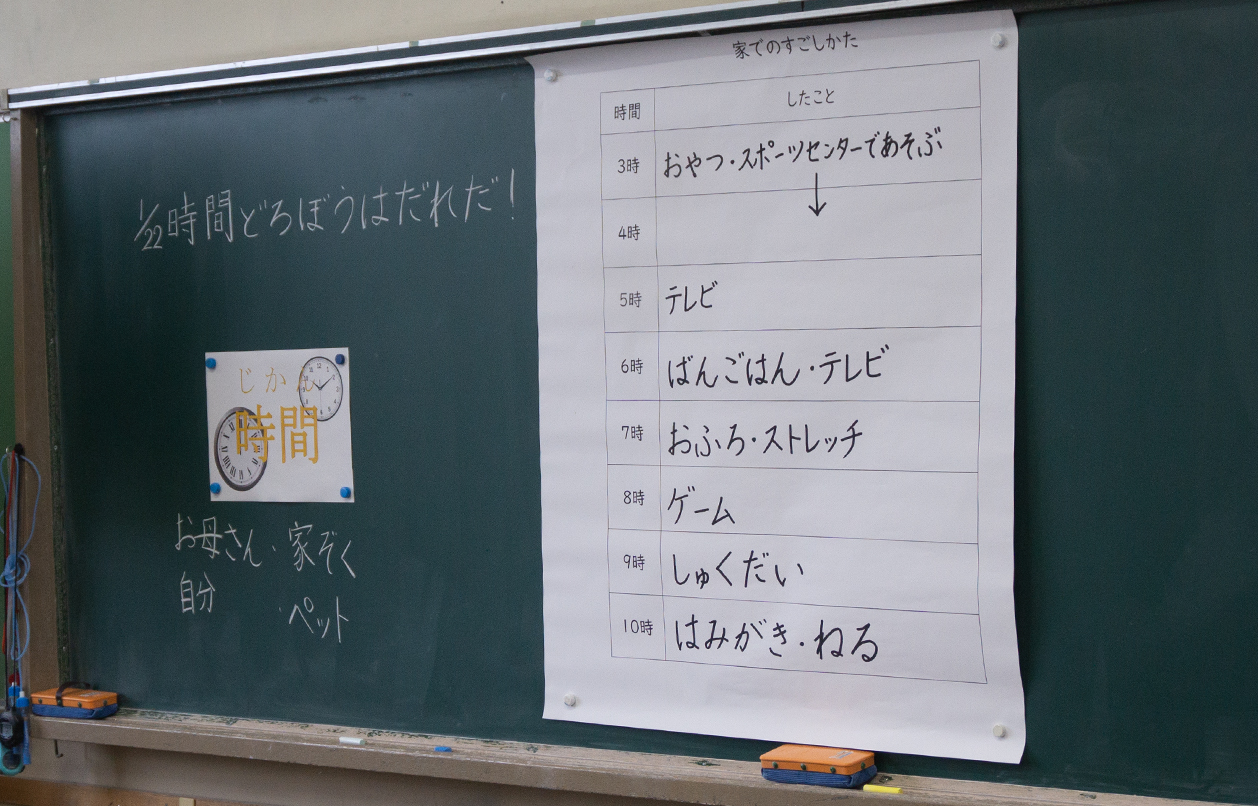 1/22 時間どろぼうはだれだ！
じかん
時間
お母さん・家ぞく
自分 ・ペット
家でのすごしかた
時間 したこと
3時 おやつ・スポーツセンターであそぶ
↓
4時
5時 テレビ
6時 ばんごはん・テレビ
7時 おふろ・ストレッチ
8時 ゲーム
9時 しゅくだい
10時 はみがき・ねる